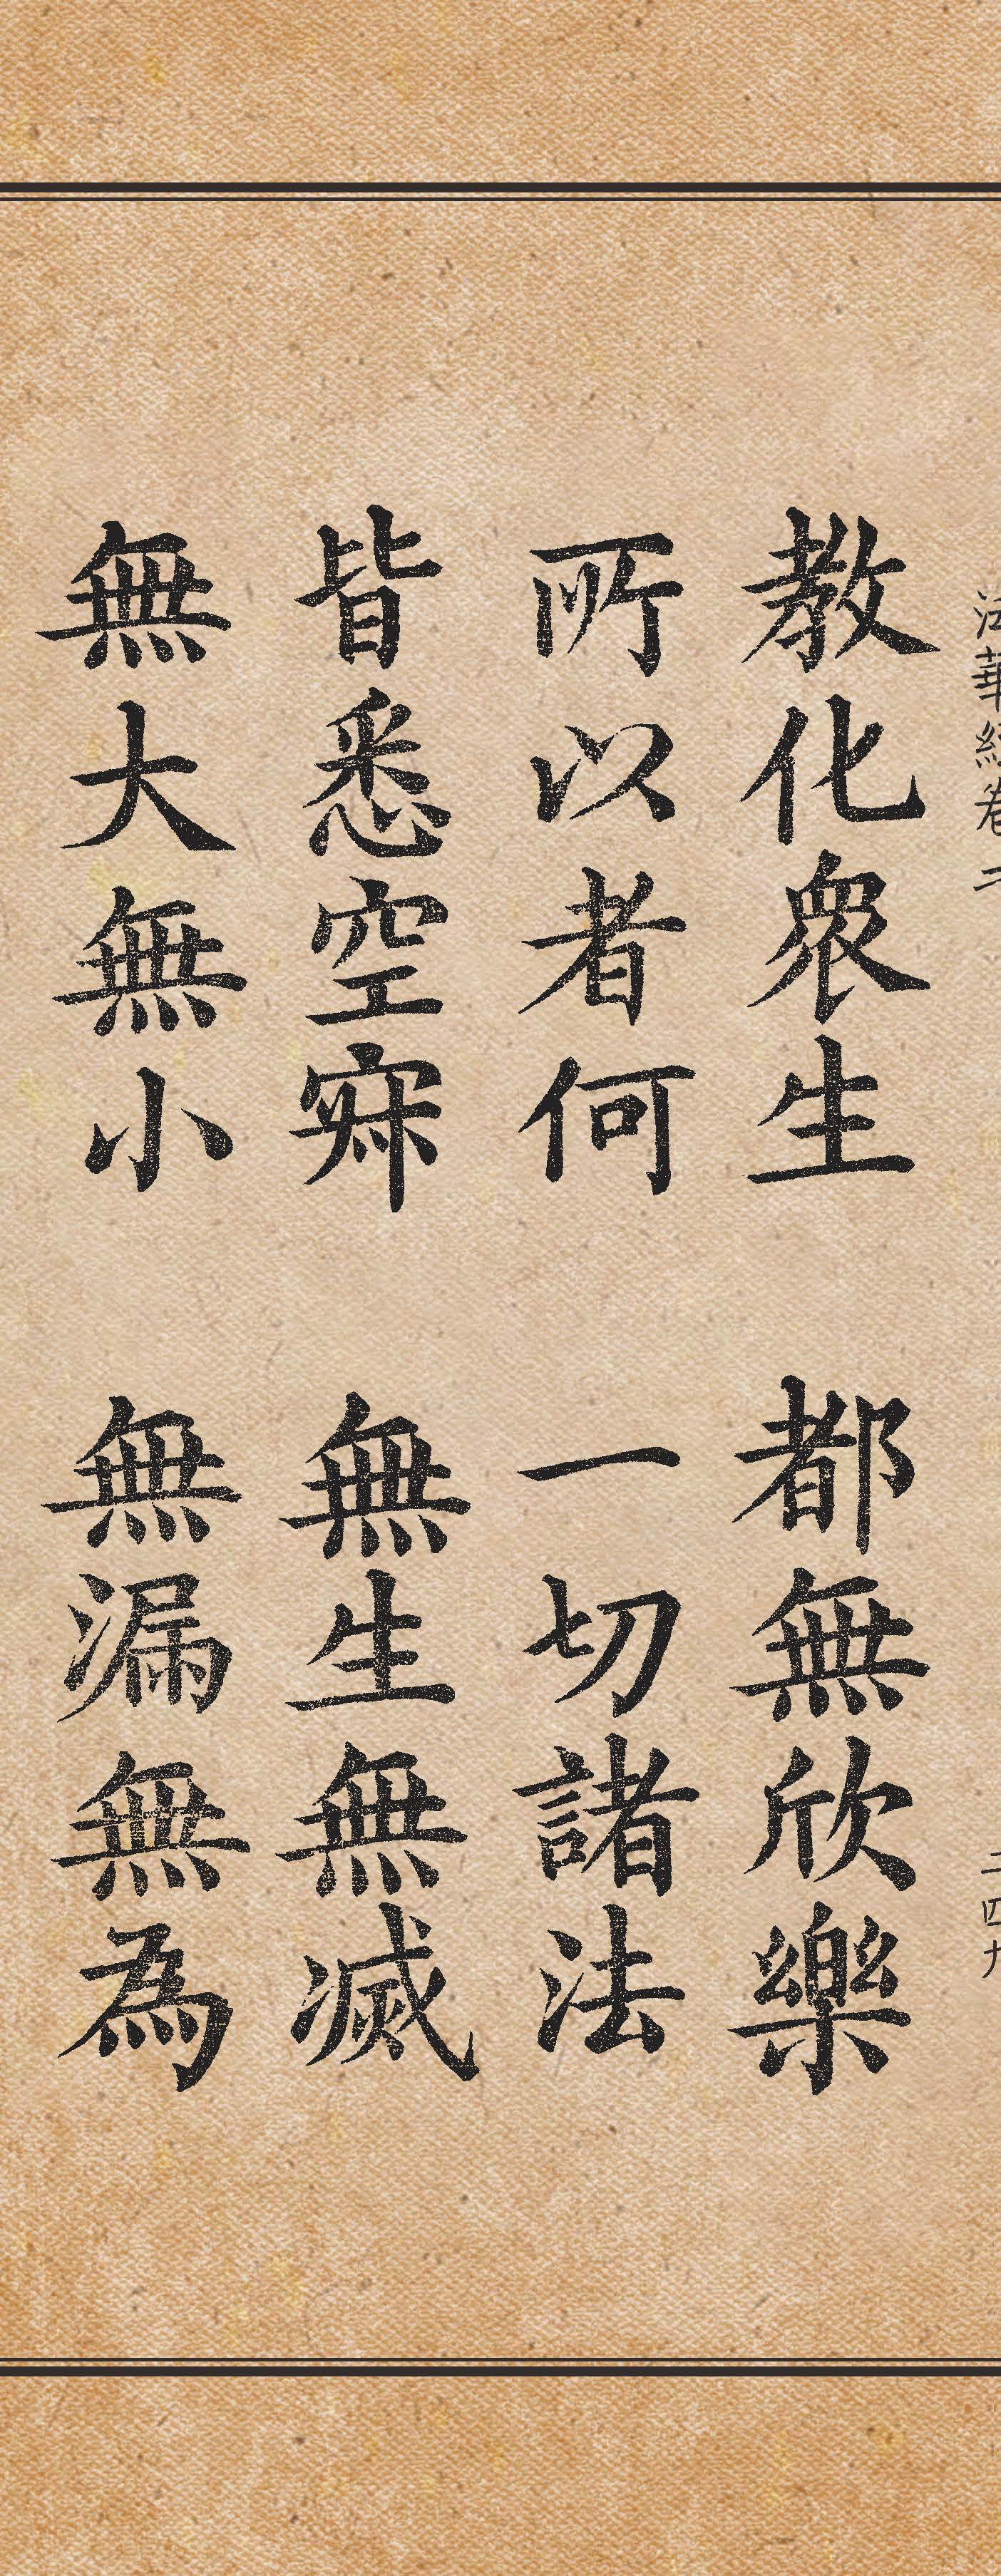 法華經卷二 二四九
教化眾生 都無欣樂
所以者何 一切諸法
皆悉空寂 無生無滅
無大無小 無漏無為